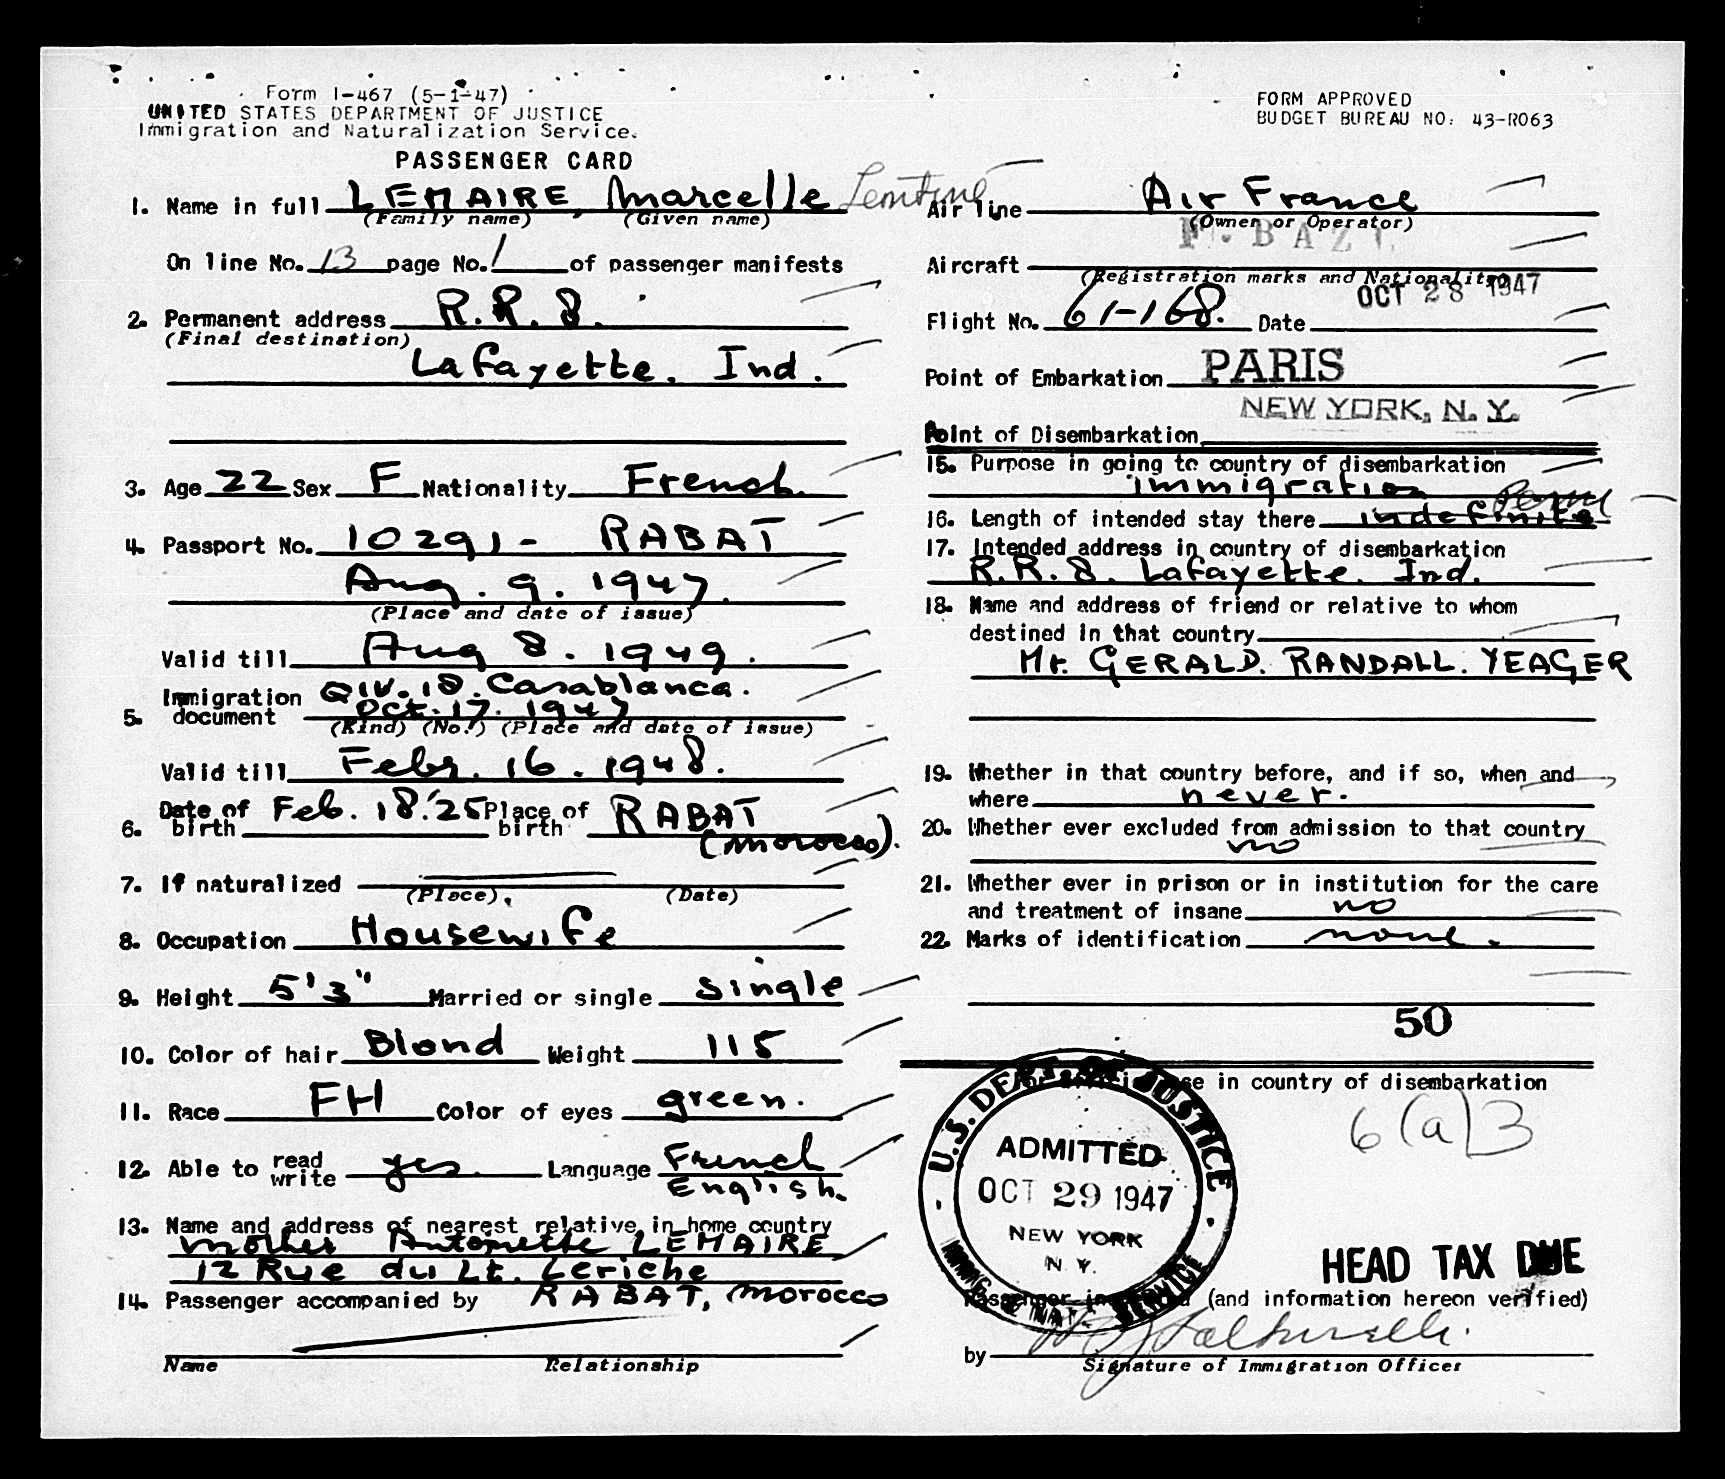 Form I-467 (5-1-47)
UNITED STATES DEPARTMENT OF JUSTICE
Immigration and Naturalization Service.
PASSENGER CARD
1. Name in full LEMAIRE, Marcelle
(Family name) (Given name)
On line No. 13 page No. 1 of passenger manifests
2. Permanent address R.R. 8.
(Final destination)
Lafayette. Ind.
3. Age 22 Sex F Nationality French.
4. Passport No. 10291- RABAT
Aug. 9. 1947.
(Place and date of issue)
Valid till Aug 8. 1949.
5. Immigration document QIV. 18. Casablanca.
Oct. 17. 1947
(Kind) (No.) (Place and date of issue)
Valid till Febr. 16. 1948.
6. Date of birth Feb. 18.'25 Place of birth RABAT
(Morocco).
7. If naturalized
(Place), (Date)
8. Occupation Housewife
9. Height 5'3" Married or single single
10. Color of hair Blond Weight 115
11. Race FH Color of eyes green.
12. Able to read write yes. Language French
English.
13. Name and address of nearest relative in home country
mother Antoinette LEMAIRE
12 Rue du Lt. Leriche
RABAT, Morocco
14. Passenger accompanied by
Name Relationship
FORM APPROVED
BUDGET BUREAU NO. 43-R063
Air line Air France
(Owner or Operator)
F. BAZ
Aircraft
(Registration marks and Nationality)
OCT 28 1947
Flight No. 61-168. Date
Point of Embarkation PARIS
NEW YORK, N. Y.
Point of Disembarkation
15. Purpose in going to country of disembarkation
immigration
16. Length of intended stay there indefinite Perm
17. Intended address in country of disembarkation
R.R. 8. Lafayette. Ind.
18. Name and address of friend or relative to whom
destined in that country
Mr. GERALD. RANDALL. YEAGER
19. Whether in that country before, and if so, when and
where never.
20. Whether ever excluded from admission to that country
no
21. Whether ever in prison or in institution for the care
and treatment of insane no
22. Marks of identification none.
50
use in country of disembarkation
6(a)3
U.S. DEPT. OF JUSTICE
ADMITTED
OCT 29 1947
NEW YORK
N. Y.
IMMIG. & NAT. SERVICE
HEAD TAX DUE
Passenger inspected (and information hereon verified)
by
Signature of Immigration Officer